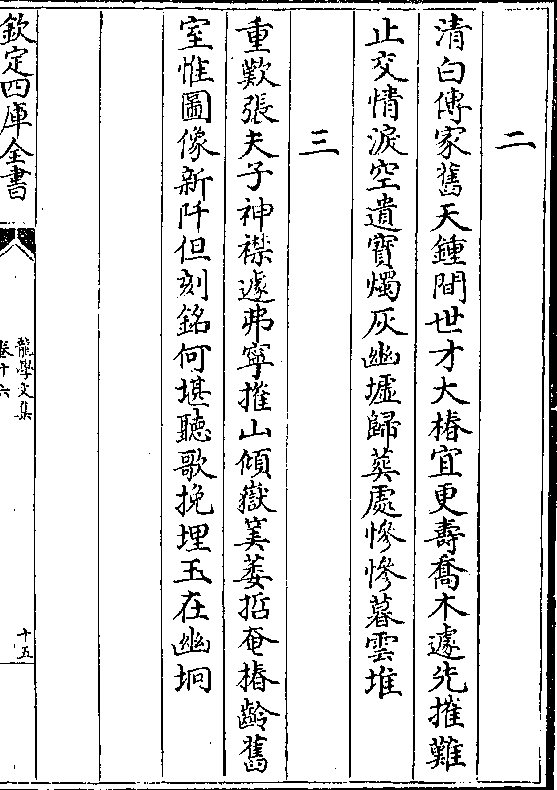 二
清白傳家舊天鍾間世才大椿宜更壽喬木遽先摧難
止交情淚空遺寶燭灰幽墟歸葬處慘慘暮雲堆
三
重歎張夫子神襟遽弗寧摧山傾嶽萎蓂掐奄椿齡舊
室惟圖像新阡但刻銘何堪聽歌挽埋玉在幽坰
欽定四庫全書
龍學文集
卷十六
十五